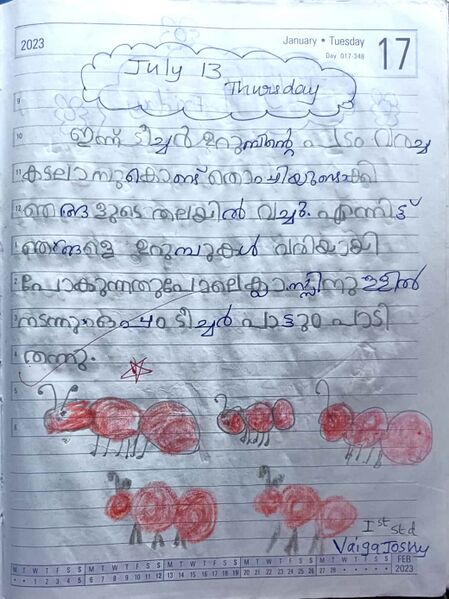 2023
January • Tuesday
Day 017-348
17
July 13
Thursday
ഇന്ന് ടീച്ചർ ഉറുമ്പിന്റെ പടം വരച്ച
കടലാസുകൊണ്ട് തൊപ്പിയുണ്ടാക്കി
ഞങ്ങളുടെ തലയിൽ വച്ചു. എന്നിട്ട്
ഞങ്ങളെ ഉറുമ്പുകൾ വരിയായി
പോകുന്നതുപോലെ ക്ലാസ്സിനുള്ളിൽ
നടന്നു ഒപ്പം ടീച്ചർ പാട്ടും പാടി
തന്നു.
Ist std
Vaiga Joshy
M T W T F S S M T W T F S S M T W T F S S M T W T F S S M T W T F S S FEB
• • 1 2 3 4 5 6 7 8 9 10 11 12 13 14 15 16 17 18 19 20 21 22 23 24 25 26 27 28 • • • • • 2023